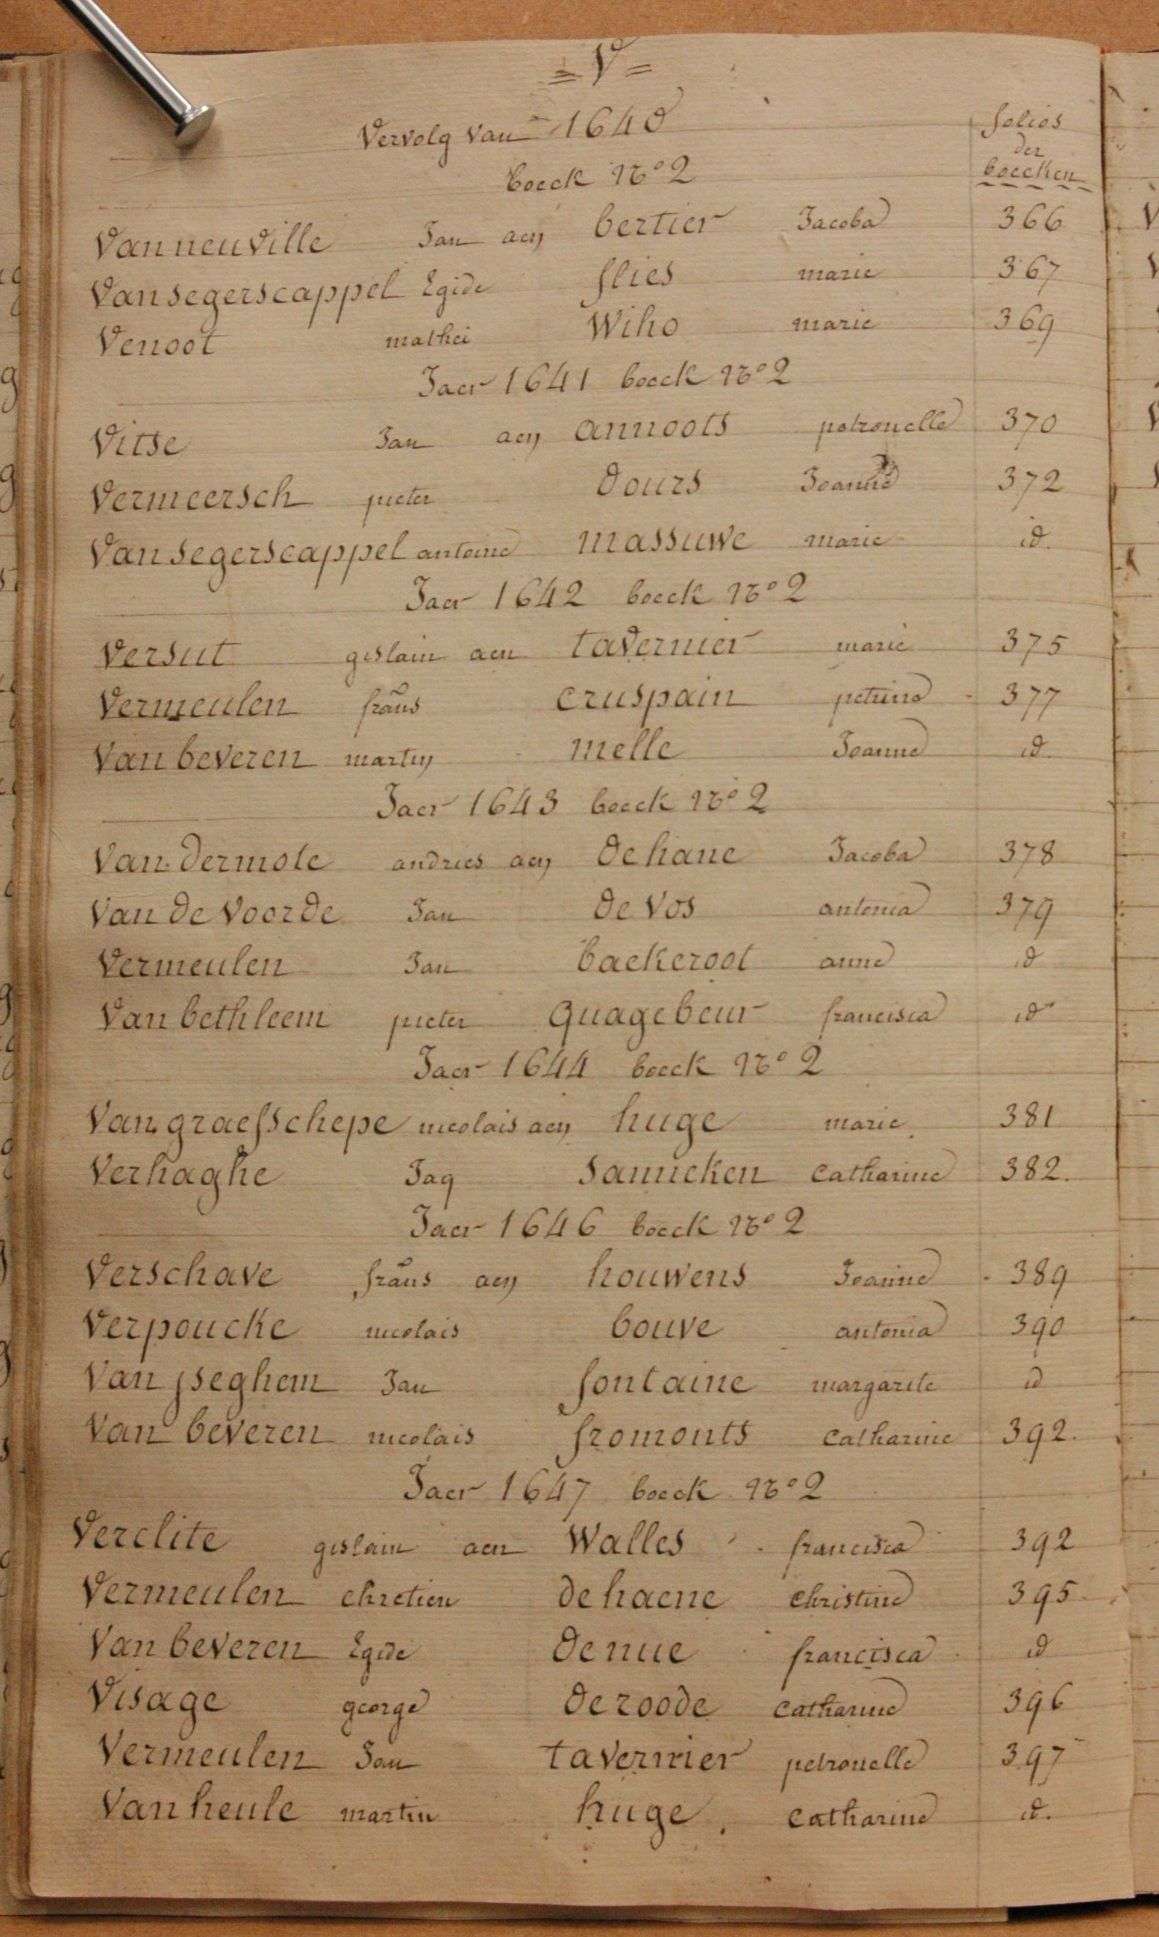 = V =
Vervolg Van 1640
folios
der
boecken
boeck N° 2
Van neuville Jan aen bertier Jacoba 366
Van segerscappel Egide flies marie 367
Venoot mathei Wiho marie 369
Jaer 1641 boeck N° 2
Vitse Jan aen annoots petronelle 370
Vermeersch pieter dours Joanne 372
Van segerscappel antoine massuwe marie id.
Jaer 1642 boeck N° 2
Versut gislain aen tavernier marie 375
Vermeulen frañs cruspain petrino 377
Van beveren martin melle Joanne id
Jaer 1643 boeck N° 2
Van dermote andries aen dehane Jacoba 378
Van de Voorde Jan de Vos antonia 379
Vermeulen Jan backeroot anne id
Van bethleem pieter quagebeur francisca id
Jaer 1644 boeck N° 2
Van graefschepe nicolais aen huge marie 381
Verhaghe Jaq sanneken Catharine 382.
Jaer 1646 boeck N° 2
Verschave frañs aen houwens Joanne 389
Verpoucke nicolais bouve antonia 390
Van jseghem Jan fontaine margarite id
Van beveren nicolais fromonts Catharine 392.
Jaer 1647 boeck N° 2
Verclite gislain aen Walles francisca 392
Vermeulen chretien dehaene christine 395
Van beveren Egide denue francisca id
Visage george deroode Catharine 396
Vermeulen Jan tavernier petronelle 397
Van heule martin huge Catharine id.